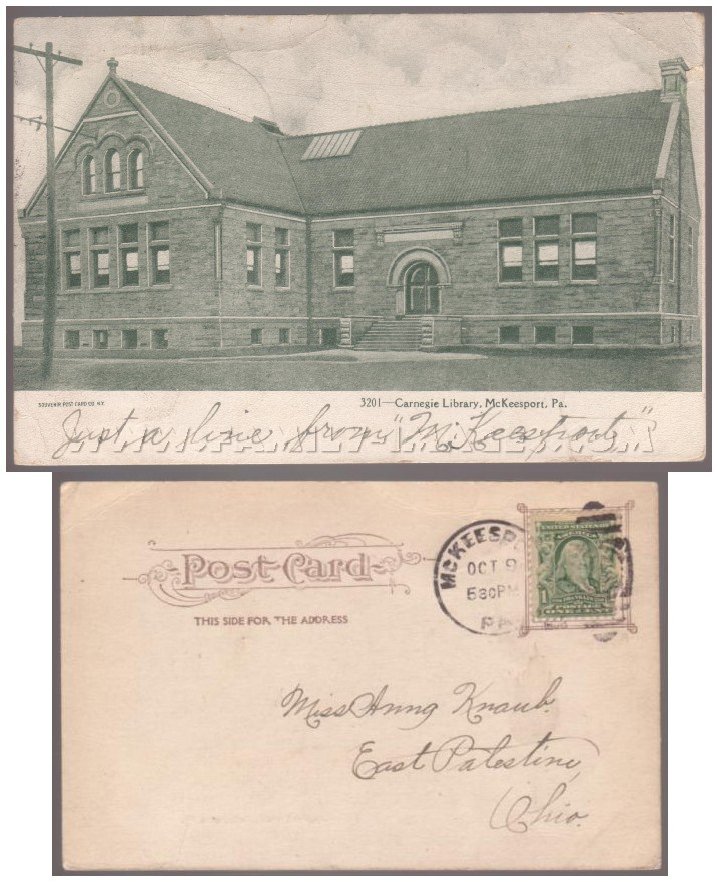 SOUVENIR POST CARD CO. N.Y.
3201—Carnegie Library, McKeesport, Pa.
Just a line from "McKeesport"
Post Card
THIS SIDE FOR THE ADDRESS
MCKEESPO
OCT 9
530PM
PA
UNITED STATES OF
AMERICA
1 FRANKLIN 1
POSTAGE ONE CENT
Miss Anna Knaub.
East Palestine,
Ohio.